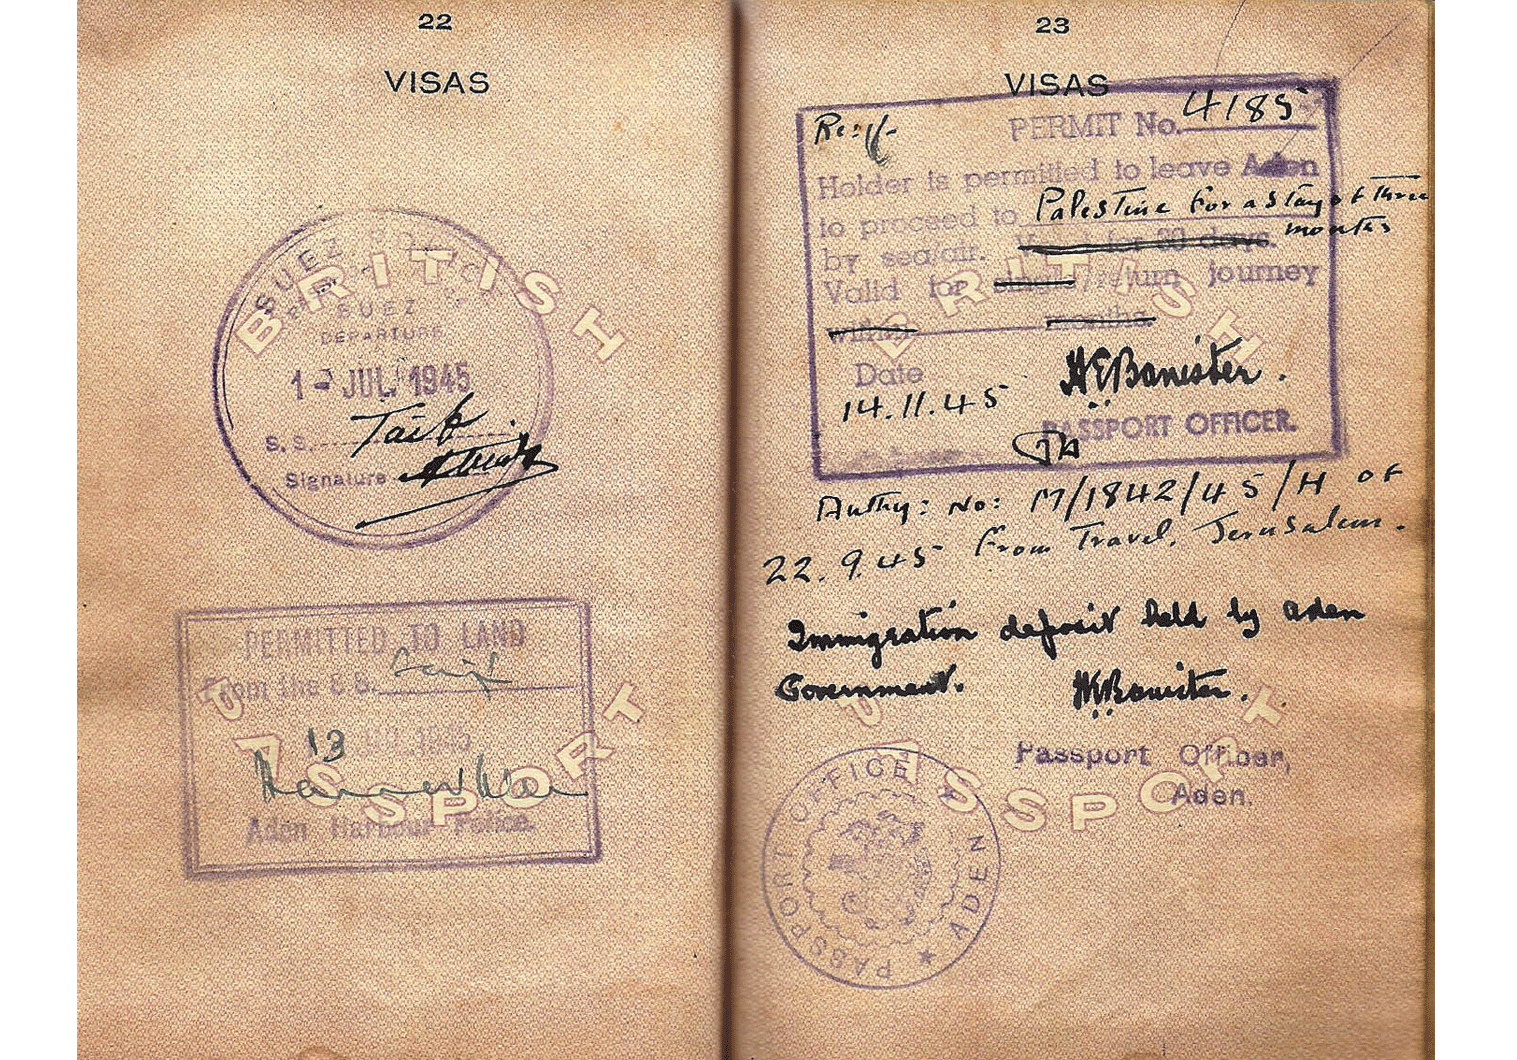 22
VISAS
SUEZ
SUEZ
DEPARTURE
1 - JUL. 1945
S. S. Taif
Signature
BRITISH
PERMITTED TO LAND
From the S.S. Taif
13 1945
Aden Harbour Police.
PASSPORT
23
VISAS
PERMIT No. 4185
Holder is permitted to leave Aden
to proceed to Palestine for a stay of three
months
by sea/air. Valid for 30 days.
Valid for single/return journey
within months
Date
14.11.45
H E Banister.
PASSPORT OFFICER.
BRITISH
Authy: No: M/1842/45/H of
22.9.45 from Travel, Jerusalem.
Immigration deposit held by Aden
Government. H E Banister.
Passport Officer,
Aden.
PASSPORT
PASSPORT OFFICE
ADEN